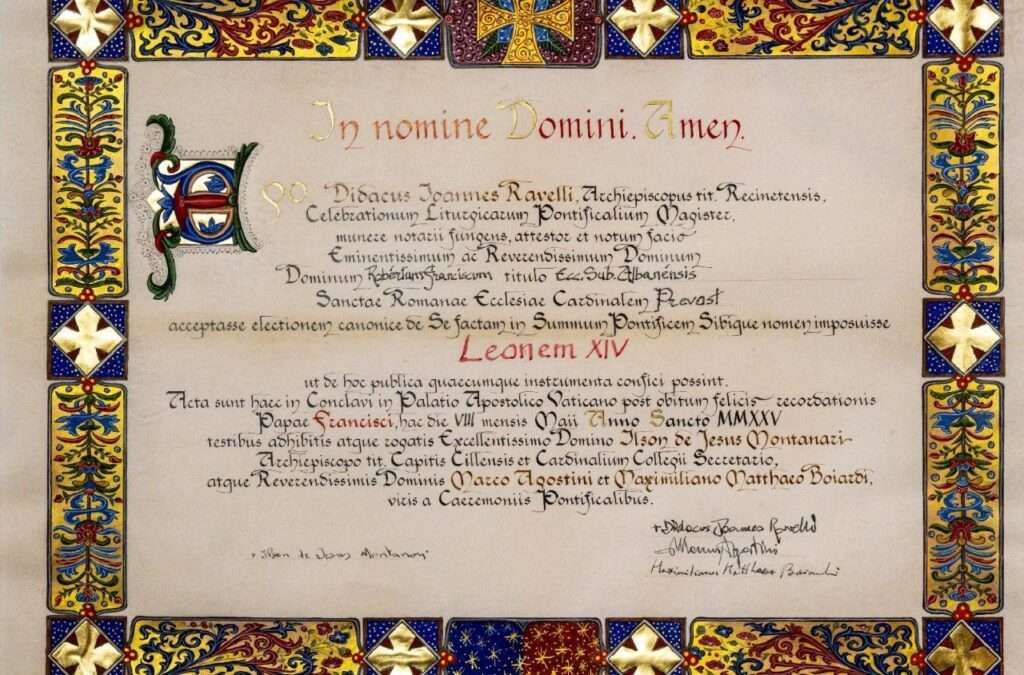 In nomine Domini. Amen.
Ego Didacus Ioannes Ravelli, Archiepiscopus tit. Recinetensis,
Celebrationum Liturgicarum Pontificalium Magister,
munere notarii fungens, attestor et notum facio
Eminentissimum ac Reverendissimum Dominum
Dominum Robertum Franciscum titulo Ecc. Sub. Albanensis
Sanctae Romanae Ecclesiae Cardinalem Prevost
acceptasse electionem canonice de Se factam in Summum Pontificem Sibique nomen imposuisse
Leonem XIV
ut de hoc publica quaecumque instrumenta confici possint.
Acta sunt haec in Conclavi in Palatio Apostolico Vaticano post obitum felicis recordationis
Papae Francisci, hac die VIII mensis Maii Anno Sancto MMXXV
testibus adhibitis atque rogatis Excellentissimo Domino Ilson de Jesus Montanari
Archiepiscopo tit. Capitis Cillensis et Cardinalium Collegii Secretario,
atque Reverendissimis Dominis Marco Agostini et Maximiliano Matthaeo Boiardi,
viris a Caeremoniis Pontificalibus.
+ Didacus Joannes Ravelli
+ Ilson de Jesus Montanari
Marcus Agostini
Maximilianus Matthaeus Boiardi